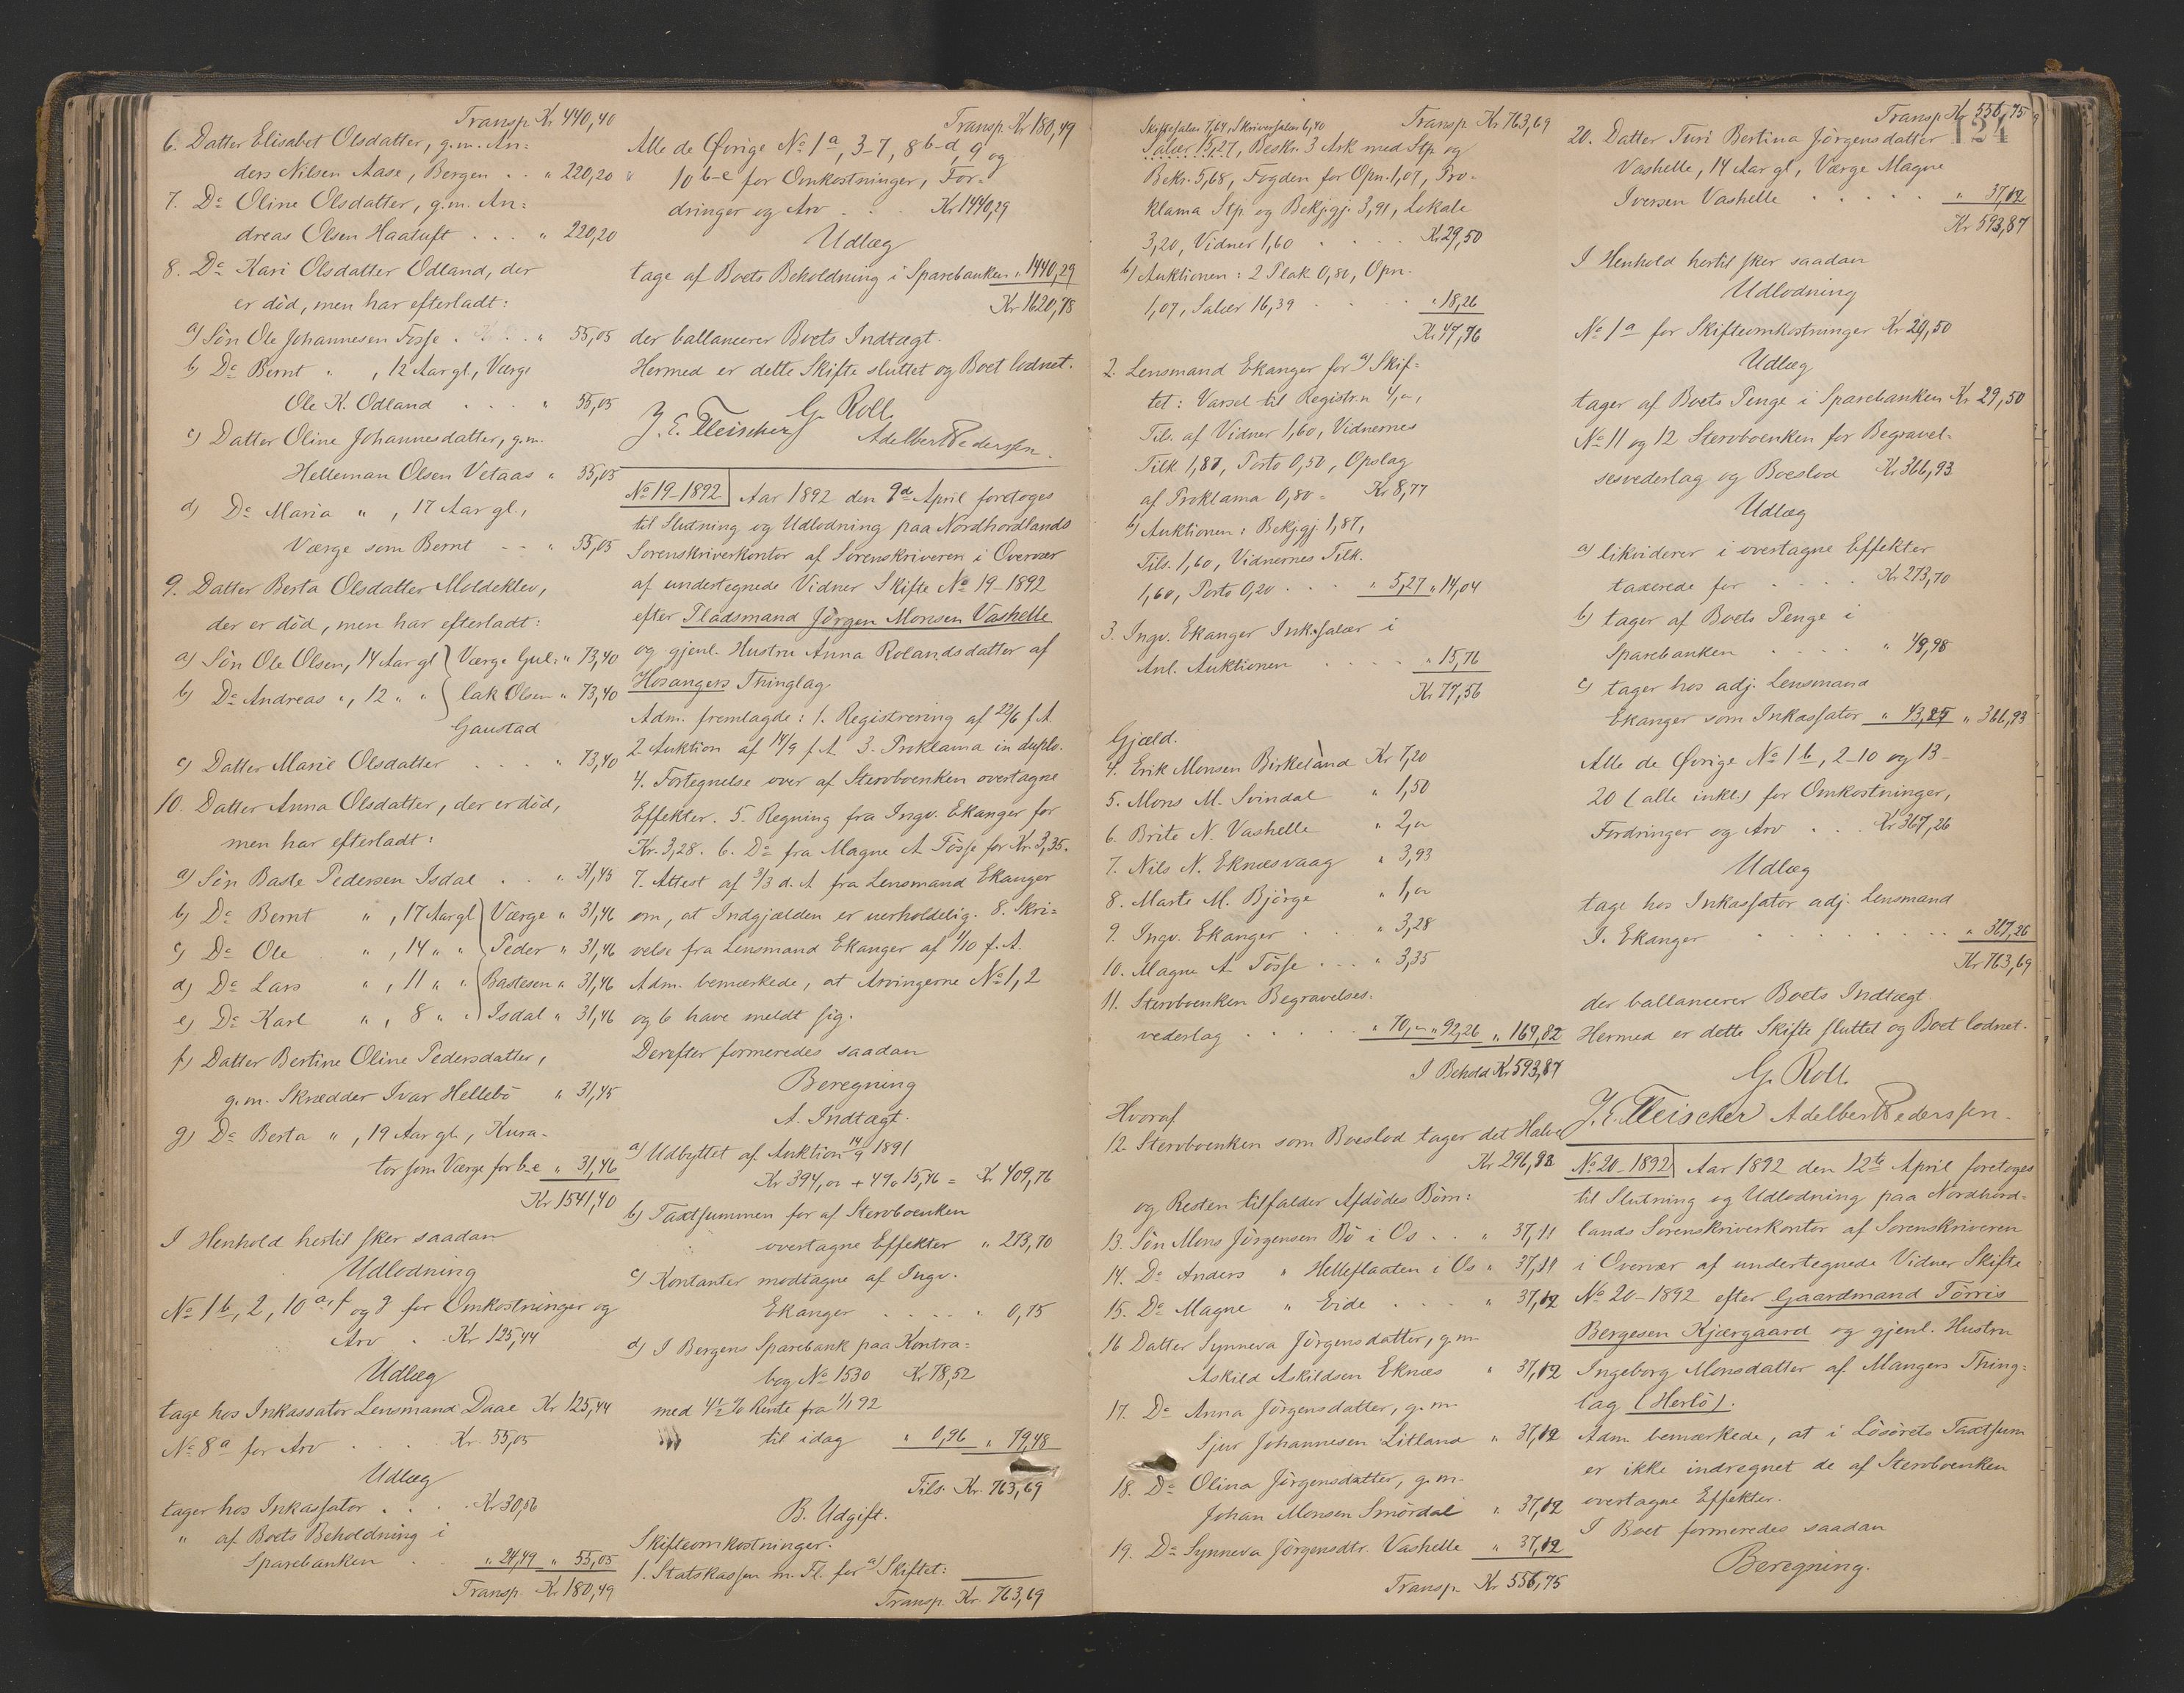 Transp. Kr 440,40
6. Datter Elisabet Olsdatter, g.m. An=
ders Nilsen Aase, Bergen . . " 220,20
7. Do Oline Olsdatter, g.m. An=
dreas Olsen Haatuft . . . " 220,20
8. Do Kari Olsdatter Odland, der
er död, men har efterladt:
a) Sön Ole Johannesen Fosse . . . " 55,05
b) Do Bernt " , 12 Aar gl, Værge
Ole K. Odland . . . . " 55,05
c) Datter Oline Johannesdatter, g.m.
Helleman Olsen Vetaas " 55,05
d) Do Maria " , 17 Aar gl,
Værge som Bernt - - " 55,05
9. Datter Berta Olsdatter Moldeklev,
der er död, men har efterladt:
a) Sön Ole Olsen, 14 Aar gl } Værge Gul= " 73,40
b) Do Andreas " , 12 " " } lak Olsen " 73,40
Gaustad
c) Datter Marie Olsdatter . . . . " 73,40
10. Datter Anna Olsdatter, der er död,
men har efterladt:
a) Sön Baste Pedersen Isdal . . " 31,45
b) Do Bernt " , 17 Aar gl } Værge " 31,46
c) Do Ole " , 14 " " } Peder " 31,46
d) Do Lars " , 11 " " } Bastesen " 31,46
e) Do Karl " , 8 " " } Isdal " 31,46
f) Datter Bertine Oline Pedersdatter,
g.m. Skrædder Ivar Hellebö " 31,45
g) Do Berta " , 19 Aar gl, Kura-
tor som Værge for b-e " 31,46
Kr 1541,40
I Henhold hertil sker saadan
Udlodning
No 1 b, 2, 10 a, f og g for Omkostninger og
Arv . Kr 125,44
Udlæg
tage hos Inkassator Lensmand Daae Kr 125,44
No 8 a for Arv . . . . Kr 55,05
Udlæg
tager hos Inkassator . . . Kr 30,56
" af Boets Beholdning i
Sparebanken . . " 24,49 " 55,05
Transp. Kr 180,49
Transp. Kr 180,49
Alle de Øvrige No 1 a, 3-7, 8 b-d, 9 og
10 b-e for Omkostninger, For=
dringer og Arv . . . Kr 1440,29
Udlæg
tage af Boets Beholdning i Sparebanken " 1440,29
Kr 1620,78
der ballancerer Boets Indtægt.
Hermed er dette Skifte sluttet og Boet lodnet.
G. Roll.
J. E. Fleischer Adelbert Pederssen.
No 19-1892 Aar 1892 den 9de April foretoges
til Slutning og Udlodning paa Nordhordlands
Sorenskriverkontor af Sorenskriveren i Overvær
af undertegnede Vidner Skifte No 19-1892
efter Pladsmand Jörgen Monsen Vashelle
og gjenl. Hustru Anna Rolandsdatter af
Hosangers Thinglag
Adm. fremlagde: 1. Registrering af 22/6 f.A.
2. Auktion af 14/9 f.A. 3. Proklama in duplo.
4. Fortegnelse over af Stervboenken overtagne
Effekter. 5. Regning fra Ingv. Ekanger for
Kr. 3,28. 6. Do fra Magne A. Fösse for Kr. 3,35.
7. Attest af 3/3 d.A. fra Lensmand Ekanger
om, at Indgjælden er uerholdelig. 8. Skri=
velse fra Lensmand Ekanger af 1/10 f.A.
Adm. bemærkede, at Arvingerne No 1, 2
og 6 have meldt sig.
Derefter formeredes saadan
Beregning
A. Indtægt.
a) Udbyttet af Auktion 14/9 1891
Kr 394,00 + 4% 15,76 = Kr 409,76
b) Taxtsummen for af Stervboenken
overtagne Effekter " 273,70
c) Kontanter modtagne af Ingv.
Ekanger . . . . . " 0,75
d) I Bergens Sparebank paa Kontra=
bog No 1530 Kr 78,52
med 4 1/2 % Rente fra 1/1 92
til idag " 0,96 " 79,48
Tils. Kr. 763,69
B. Udgift.
Skifteomkostninger:
1. Statskassen m. Fl. for a) Skiftet:
Transp. Kr. 763,69
Skiftesalær 7,64, Skriversalær 6,40 Transp. Kr 763,69
Salær 15,27, Beskr. 3 Ark med Stp. og
Bekr. 5,68, Fogden for Opn. 1,07, Pro=
klama Stp. og Bekjgj. 3,91, Lokale
3,20, Vidner 1,60 . . . . Kr 29,50
b) Auktionen: 2 Plak. 0,80, Opn.
1,07, Salær 16,39 . . . " 18,26
Kr 47,76
2. Lensmand Ekanger for a) Skif=
tet: Varsel til Registr.n 4,00,
Tils. af Vidner 1,60, Vidnernes
Tilk 1,87, Porto 0,50, Opslag
af Proklama 0,80 = Kr 8,77
b) Auktionen: Bekjgj. 1,87,
Tils. 1,60, Vidnernes Tilk.
1,60, Porto 0,20 . . . " 5,27 " 14,04
3. Ingv. Ekanger Ink.salær i
Anl. Auktionen . . . . " 15,76
Kr 77,56
Gjæld.
4. Erik Monsen Birkeland Kr 7,20
5. Mons M. Svindal " 1,50
6. Brite N. Vashelle " 2,00
7. Nils N. Eknæsvaag " 3,93
8. Marte M. Bjørge " 1,00
9. Ingv. Ekanger . . . " 3,28
10. Magne A. Fösse . . . " 3,35
11. Stervboenken Begravelses=
vederlag . . . . . " 70,00 " 92,26 " 169,82
I Behold Kr 593,87
Hvoraf
12. Stervboenken som Boeslod tager det Halve
Kr 296,93
og Resten tilfalder Afdödes Börn:
13. Sön Mons Jörgensen Bö i Os . . " 37,11
14. Do Anders " Helleflaaten i Os " 37,11
15. Do Magne " Eide . . . . " 37,12
16 Datter Synneva Jörgensdatter, g.m.
Askild Askildsen Eknæs " 37,12
17. Do Anna Jörgensdatter, g.m.
Sjur Johannesen Litland " 37,12
18. Do Olina Jörgensdatter, g.m.
Johan Monsen Smördal " 37,12
19. Do Synneva Jörgensdtr. Vashelle " 37,12
Transp. Kr 556,75
Transp. Kr 556,75
124
20. Datter Turi Bertina Jörgensdatter
Vashelle, 14 Aar gl, Værge Magne
Iversen Vashelle . . . . . " 37,12
Kr 593,87
I Henhold hertil sker saadan
Udlodning
No 1 a for Skifteomkostninger Kr 29,50
Udlæg
tager af Boets Penge i Sparebanken Kr 29,50
No 11 og 12 Stervboenken for Begravel=
sesvederlag og Boeslod Kr 366,93
Udlæg
a) likviderer i overtagne Effekter
taxerede for . . . . Kr 273,70
b) tager af Boets Penge i
Sparebanken . . . . " 49,98
c) tager hos adj. Lensmand
Ekanger som Inkassator " 43,25 " 366,93
Alle de Øvrige No 1 b, 2-10 og 13-
20 (alle inkl.) for Omkostninger,
Fordringer og Arv . . . Kr 367,26
Udlæg
tage hos Inkassator adj. Lensmand
I. Ekanger . . . . . . . . " 367,26
Kr 763,69
der ballancerer Boets Indtægt.
Hermed er dette Skifte sluttet og Boet lodnet.
G. Roll.
J. E. Fleischer Adelbert Pederssen.
No 20-1892 Aar 1892 den 12te April foretoges
til Slutning og Udlodning paa Nordhord=
lands Sorenskriverkontor af Sorenskriveren
i Overvær af undertegnede Vidner Skifte
No 20-1892 efter Gaardmand Törris
Bergesen Kjærgaard og gjenl. Hustru
Ingeborg Monsdatter af Mangers Thing=
lag (Herlö).
Adm. bemærkede, at i Lösörets Taxtsum
er ikke indregnet de af Stervboenken
overtagne Effekter.
I Boet formeredes saadan
Beregning.